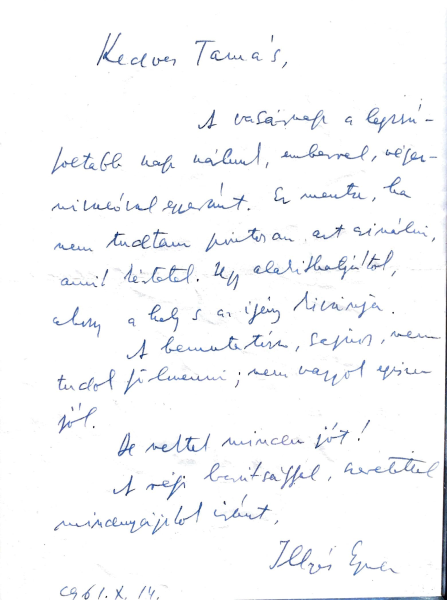 Kedves Tamás,
A vasárnap a legzsú-
foltabb nap nálunk, emberrel, véger-
nivalóval egyaránt. Ez mentse, ha
nem tudtam pontosan azt csinálni,
amit kértetek. Úgy alakíthatjátok,
ahogy a hely s az igény kívánja.
A bemutatóra, sajnos, nem
tudok fölmenni; nem vagyok egészen
jól.
De nektek minden jót!
A régi barátsággal, szeretettel
mindnyájatok iránt,
Illyés Gyula
1961. X. 14.